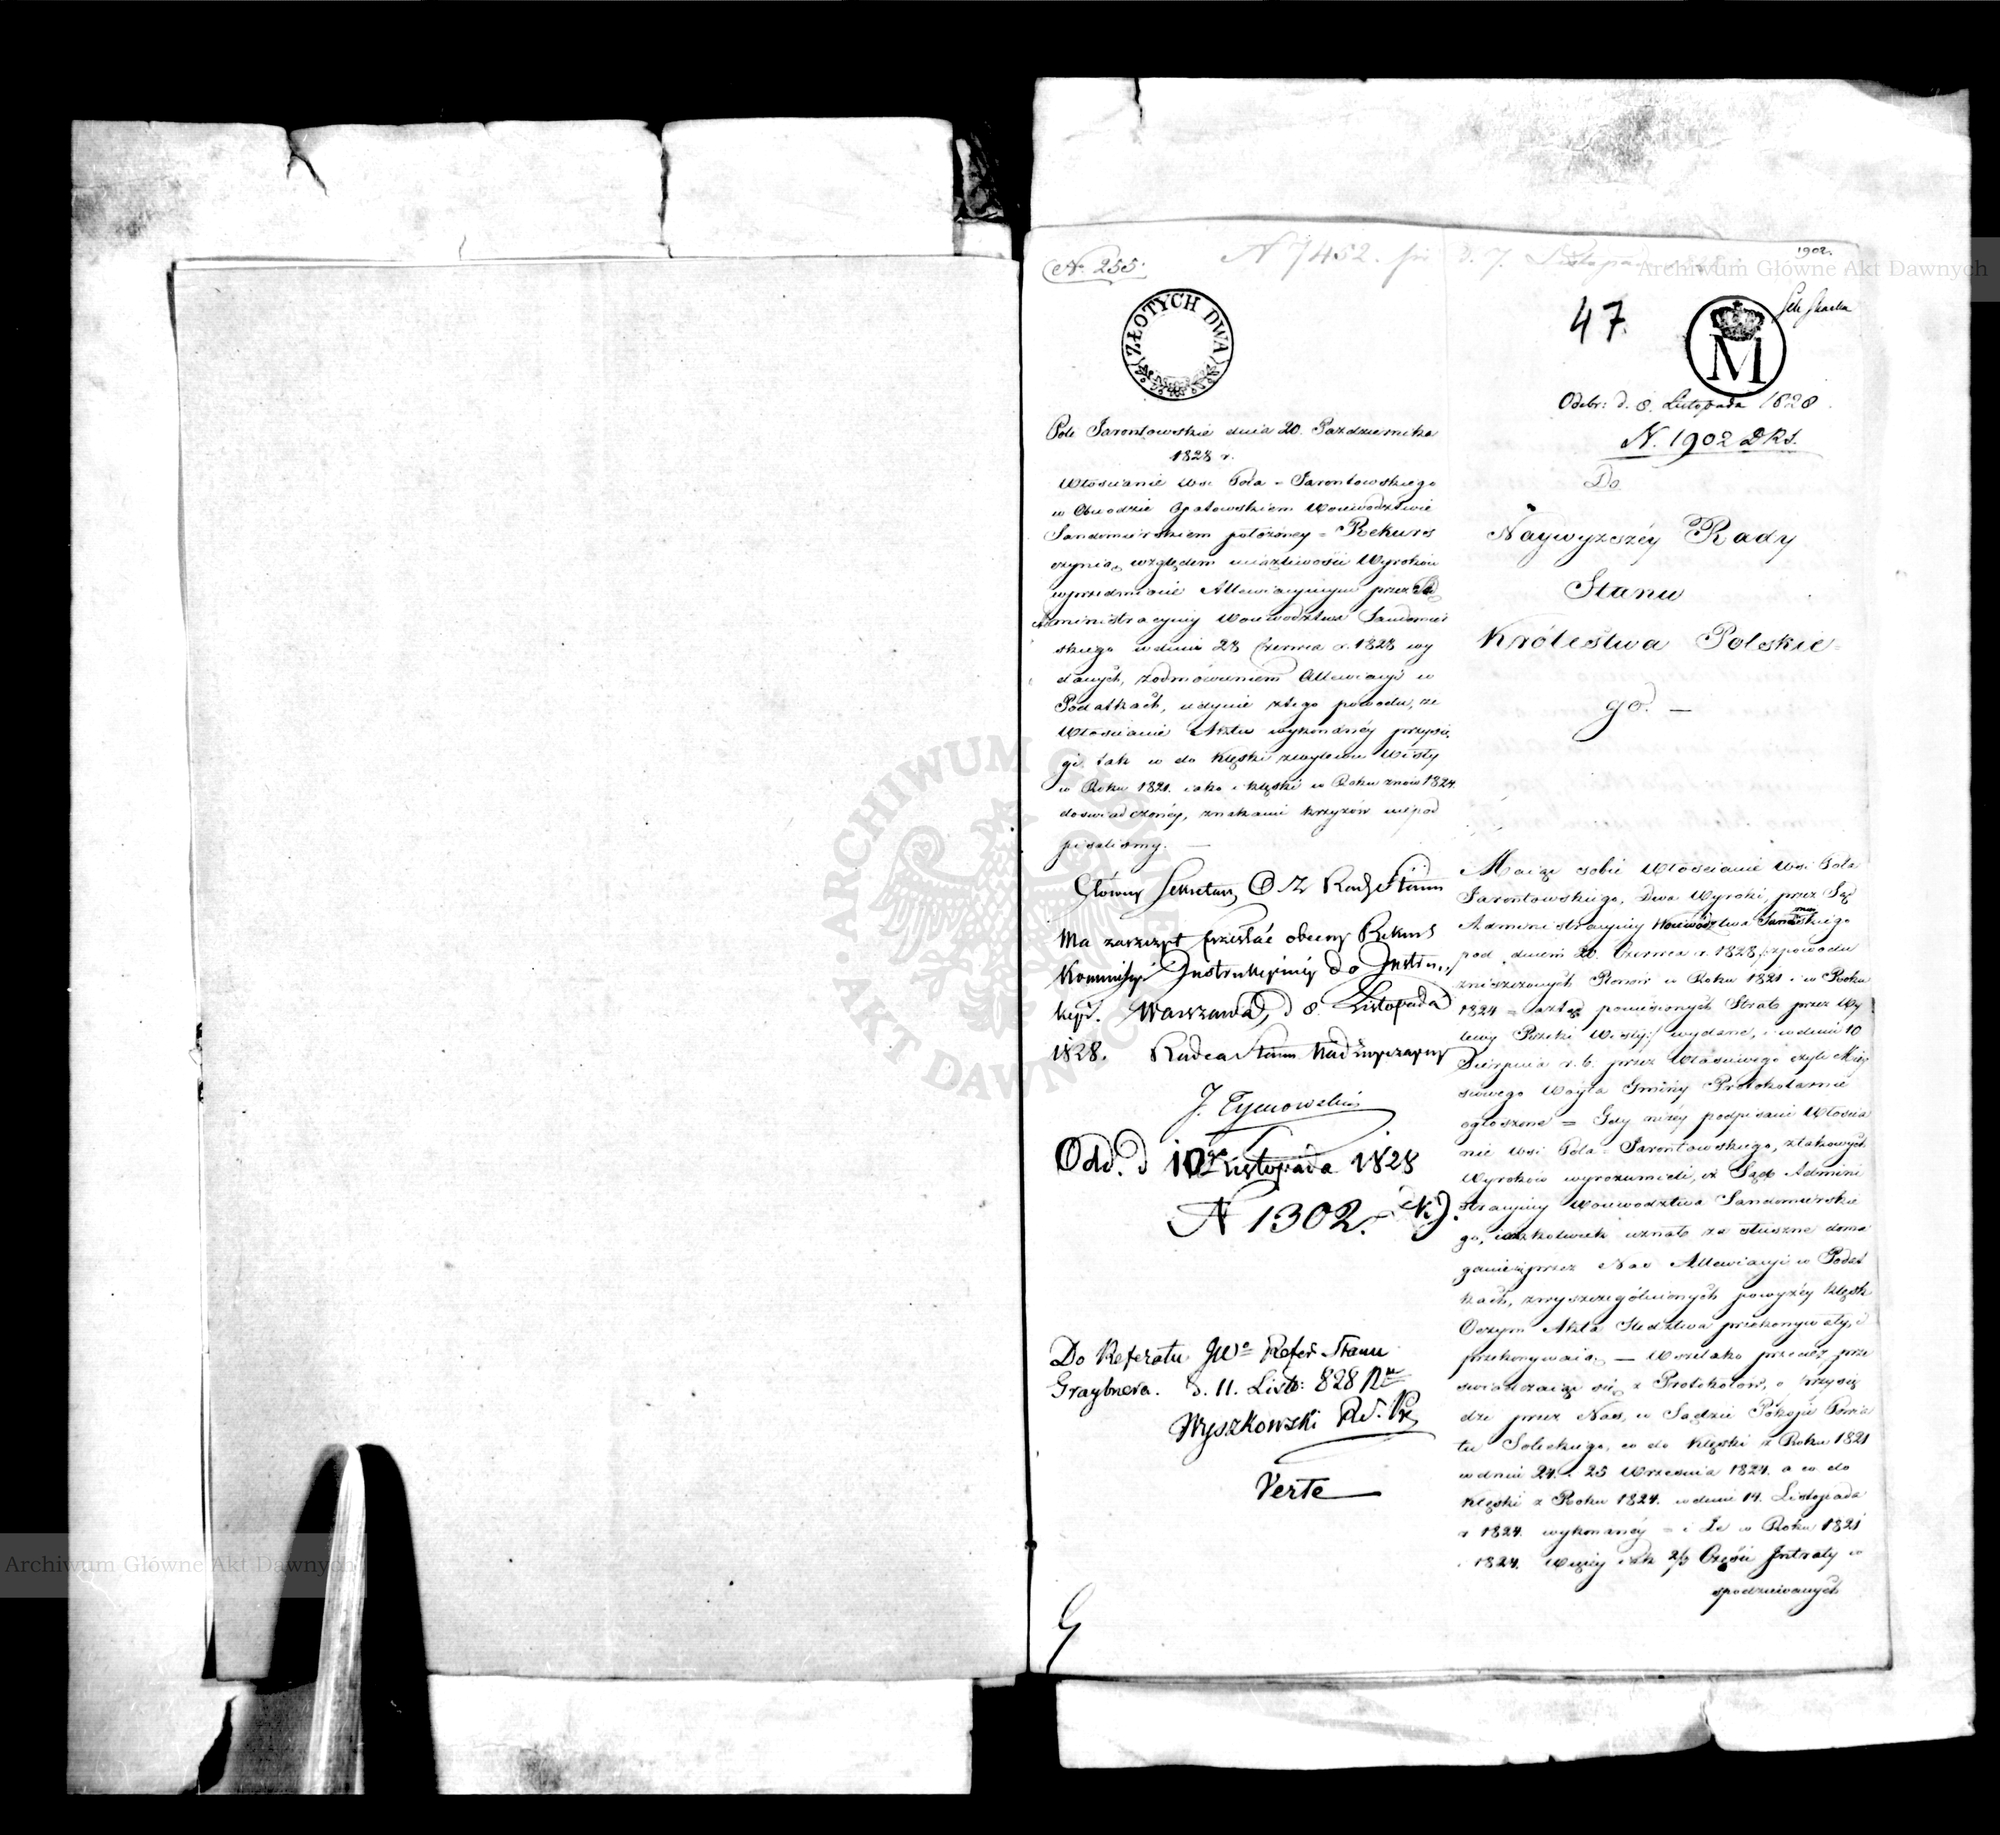 N. 255.
N 7452. pr d. 7. Listopada
1902.
47.
ZŁOTYCH DWA
M
Odebr: d. 8. Listopada 1828
N. 1902 DRS.
Pole Jarontowskie dnia 20. Pazdziernika
1828 r.
Włościanie wsi Pola-Jarontowskiego
w Obwodzie Opatowskiem Woiewodztwie
Sandomirskiem położoney = Rekurs
czynią względem uciążliwości Wyroków
w przedmiocie Allewiacyinym przez Sąd
Administracyiny Woiewodztwa Sandomir
skiego w dniu 28 Czerwca r. 1828 wy
danych, z odmówieniem Allewiacyi w
Podatkach, iedynie z tego powodu, że
Włościanie Aktu wykonanéy przysię
gi tak co do klęski z wylewu Wisły
w Roku 1821. iako i klęski w Roku znów 1824
doświadczonéy, znakami krzyżów niepod
pisaliśmy. —
Główny Sekretarz Rady Stanu
Ma zaszczyt przesłać obecny Rekurs
Kommissyi Instrukcyinéy do Instru-
kcyi. Warszawa, d 8. Listopada
1828. Radca Stanu Nadzwyczayny
J. Tymowski
Odd. d 10 Listopada 1828
N 1302.
Do Referatu JWo Refer. Stanu
Graybnera. d. 11. Listo: 828 r
Wyszkowski
Verte
Do
Naywyższéy Rady
Stanu
Królestwa Polskie=
go. —
Maiąc sobie Włościanie wsi Pola
Jarontowskiego, Dwa Wyroki przez Sąd
Administracyiny Woiewództwa Sandomirskiego
pod dniem 28. Czerwca r. 1828, z powodu
zniszczonych Plonów w Roku 1821. i w Roku
1824 = a ztąd poniesionych Strat przez Wy
lewy Rzeki Wisły:/ wydane, i w dniu 10
Sierpnia r. b. przez Właściwego czyli Miey
scowego Wóyta Gminy Protokolarnie
ogłoszone = Gdy niżey podpisani Włościa
nie wsi Pola-Jarontowskiego, z takowych
Wyroków wyrozumieli, iż Sąd Admini
stracyiny Woiewodztwa Sandomirskie
go, iakkolwiek uznał za słuszne doma
ganie się przez Nas Allewiacyi w Podat
kach, z wyszczególnionych powyżéy klęsk
O czym Akta Śledztwa przekonywały, i
przekonywaią — Wszelako przecież prze
świadczaiąc się z Protokołów, o Przysię
dze przez Nas, w Sądzie Pokoju Powia
tu Soleckiego, co do klęski z Roku 1821
w dniu 24. i 25 Września 1824. a co do
klęski z Roku 1824. w dniu 14. Listopada
r 1824. wykonanéy = i że w Roku 1821
i 1824. więcéy iak 2/3 Części Intraty w
spodziewanych
Archiwum Główne Akt Dawnych
Archiwum Główne Akt Dawnych
ARCHIWUM GŁÓWNE · AKT DAWNYCH ·